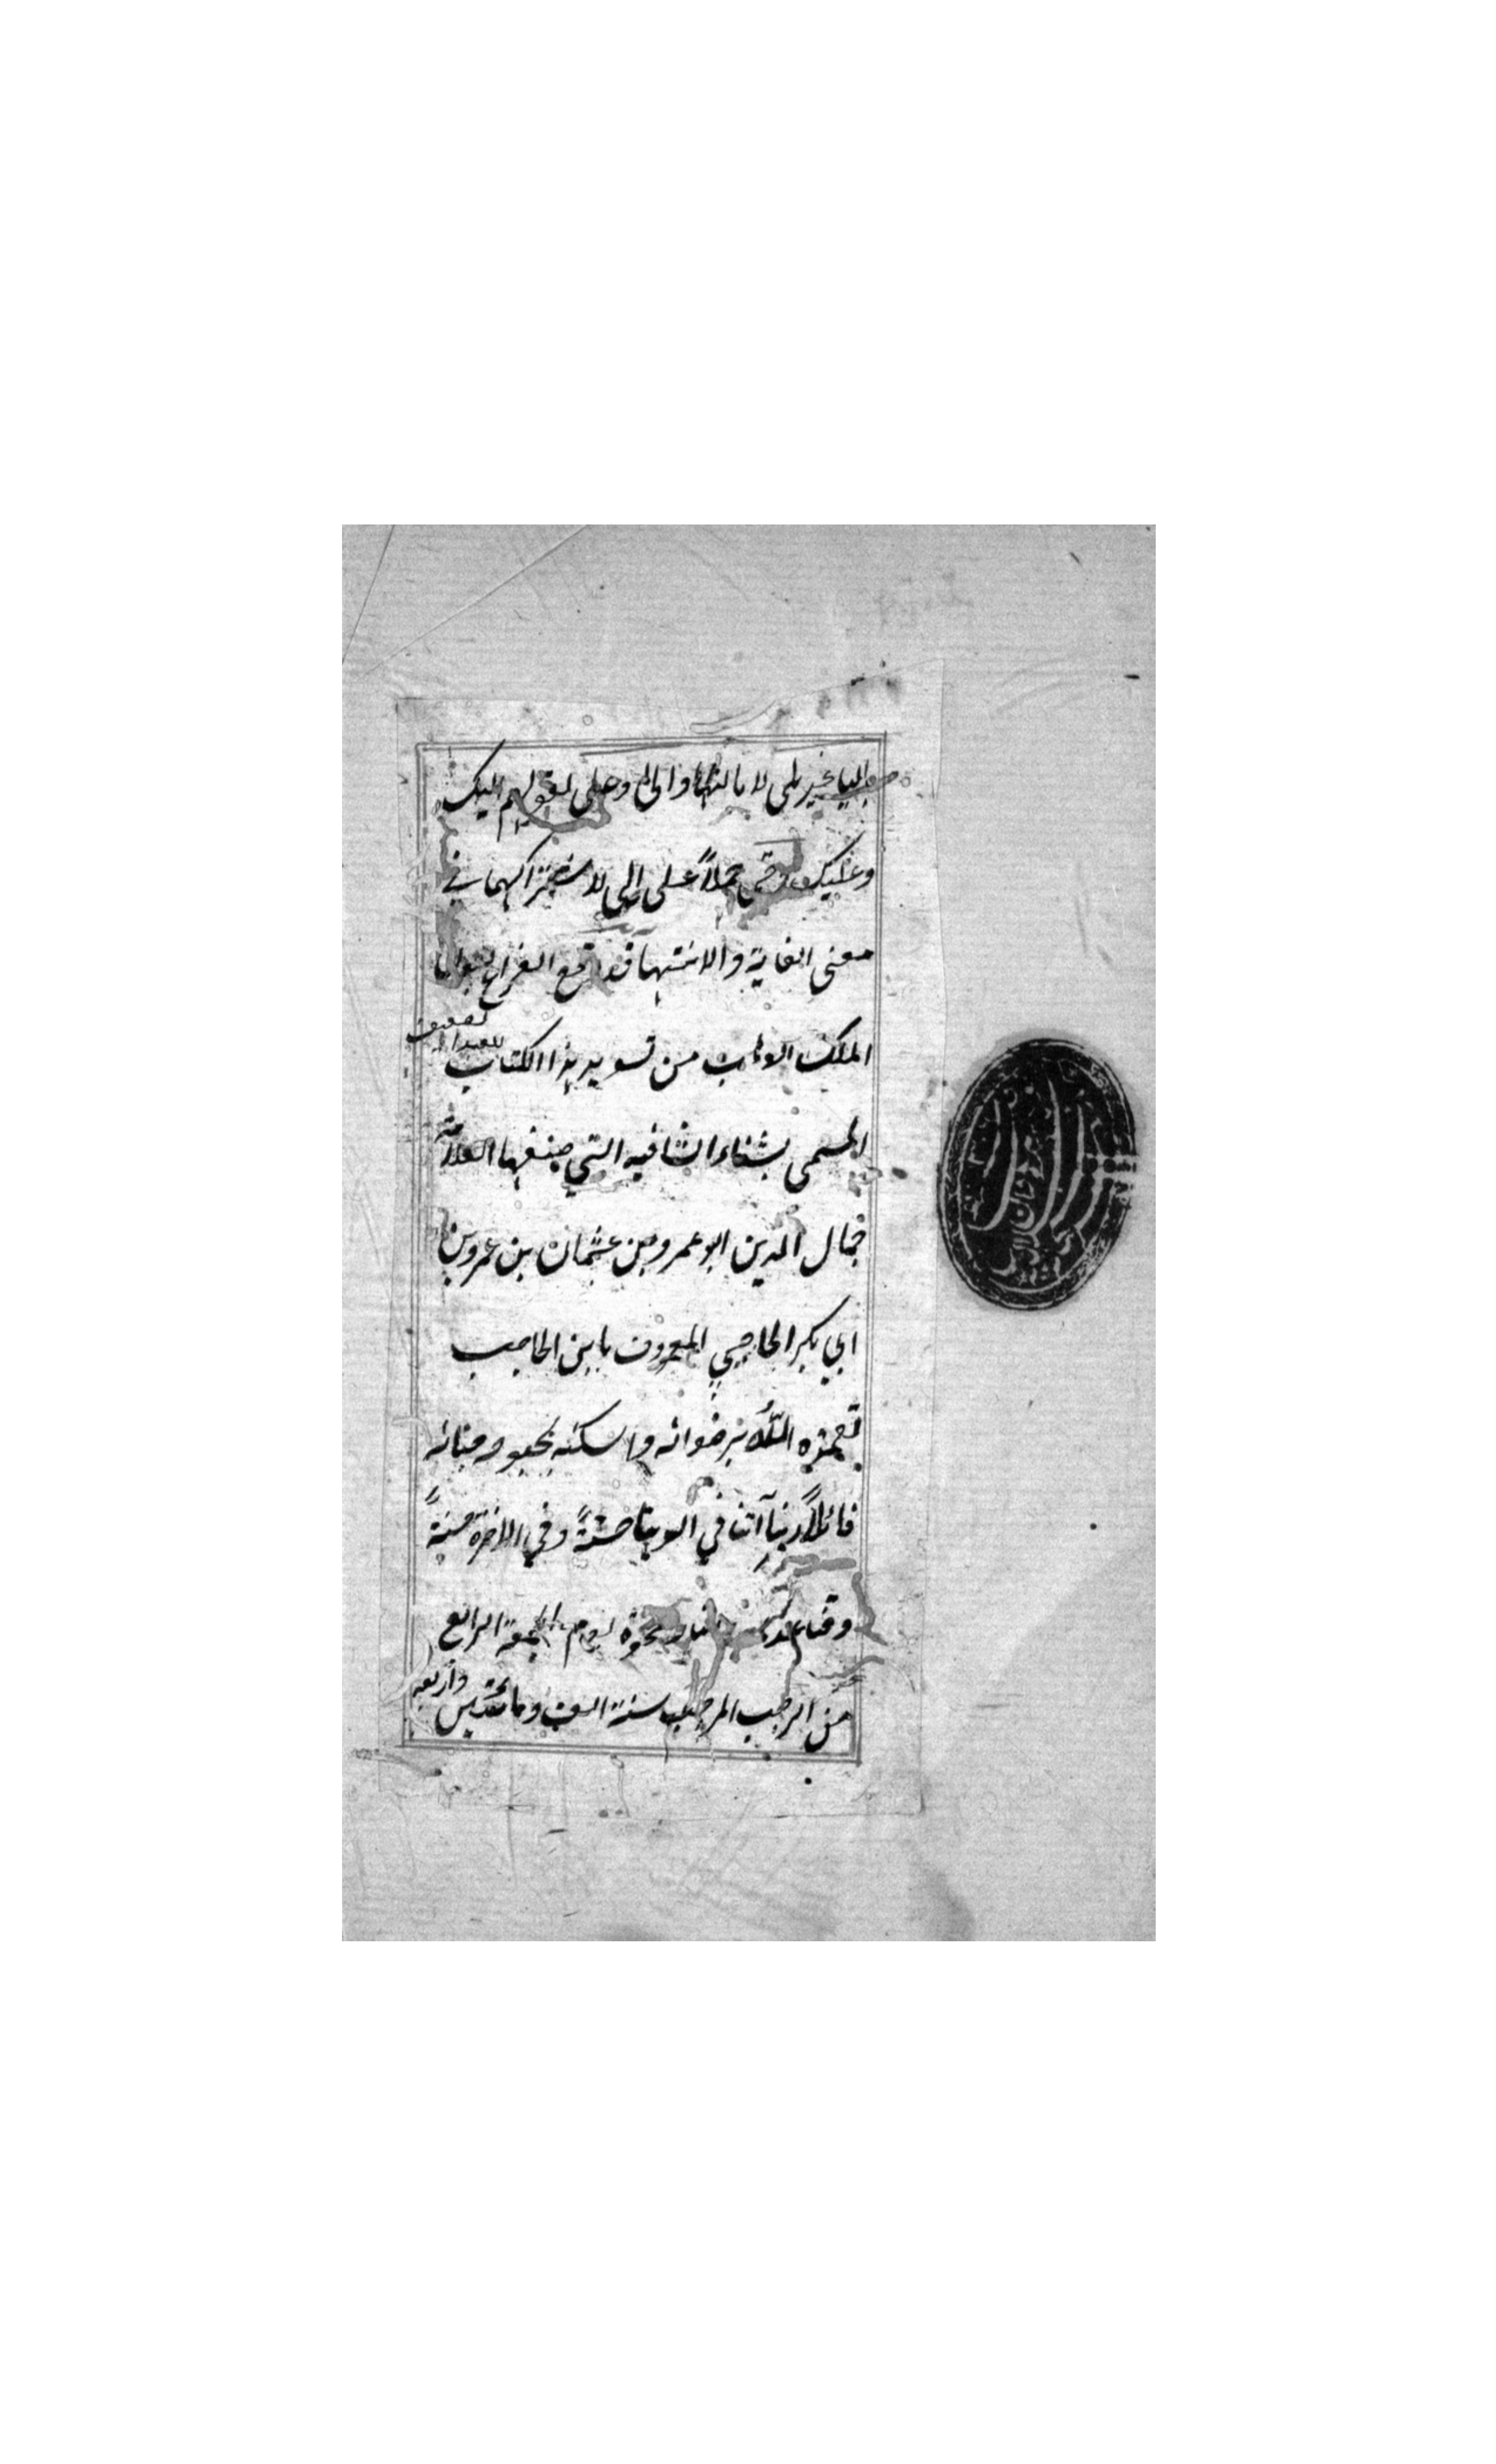 بالياء غير بلى لامالتها والى وعلى لقولهم اليك
وعليك وحتى حملاً على الى لاشتراكهما في
معنى الغاية والانتهاء قد وقع الفراغ بعون
الملك الوهاب من تسويد هذا الكتاب
للعبد
المسمى بشفاء الشافيه التي صنفها العلامة
جمال الدين ابو عمرو بن عثمان بن عمرو بن
ابي بكر الحاجبي المعروف بابن الحاجب
تغمده الله برضوانه واسكنه بحبوحه جنانه
قائلاً ربنا آتنا في الدنيا حسنةً وفي الاخرة حسنةً
وقنا عذاب النار ضحوة يوم الجمعة الرابع
من الرجب المرجب سنة الف ومائتين واربعه